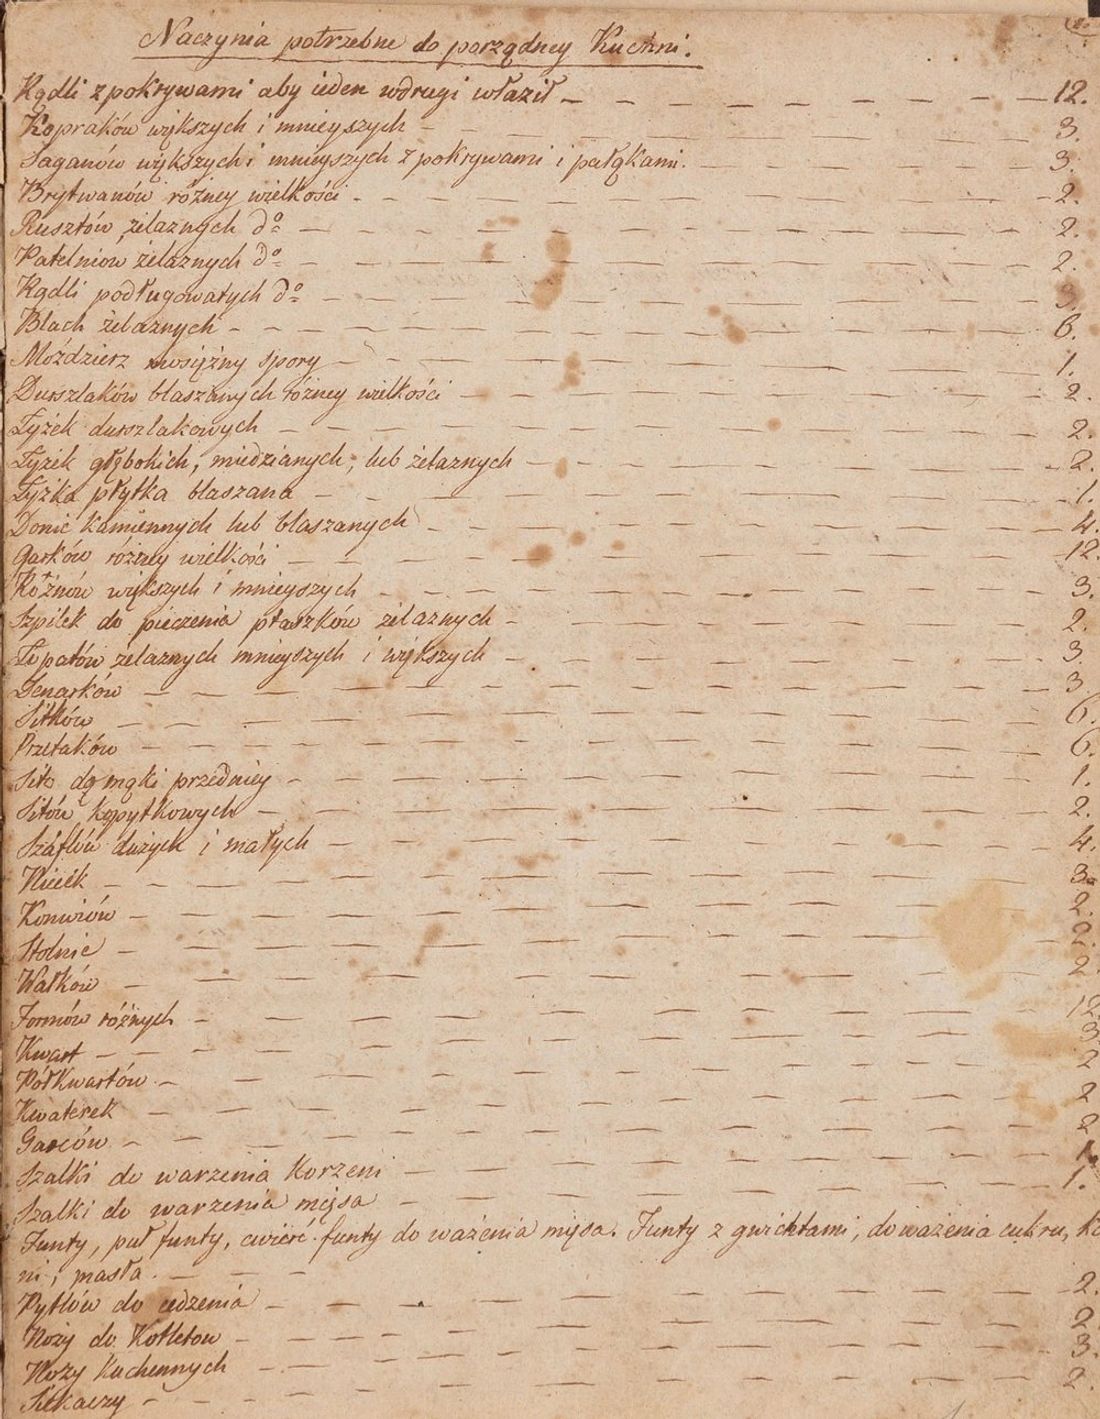 Naczynia potrzebne do porządney Kuchni.
Kądli z pokrywami aby ieden w drugi właził — 12.
Kopraków większych i mnieyszych — 3.
Saganów większych i mnieyszych z pokrywami i pałąkami. — 3.
Brytwanów różney wielkości — 2.
Rusztów żelaznych do — 2.
Patelniow żelaznych do — 2.
Kądli podługowatych do — 3.
Blach żelaznych — 6.
Moździerz mosiężny spory — 1.
Durszlaków blaszanych różney wielkości — 2.
Łyżek durszlakowych — 2.
Łyżek głębokich, miedzianych, lub żelaznych — 2.
Łyżka płytka blaszana — 1.
Donic kamiennych lub blaszanych — 4.
Garków różney wielkości — 12.
Rożnów większych i mnieyszych — 3.
Szpilek do pieczenia ptaszków żelaznych — 2.
Łopatów żelaznych mnieyszych i większych — 3.
Denarków — 3
Sitków — 6.
Przetaków — 6.
Sito do mąki przedniey — 1.
Sitów kopytkowych — 2.
Szaflów dużych i małych — 4.
Niecek — 3
Konwiów — 2.
Stolnic — 2.
Wałków — 2.
Formów różnych — 12
Kwart — 3
Półkwartów — 2
Kwaterek — 2
Garców — 2
Szalki do warzenia Korzeni — 1.
Szalki do warzenia mięsa — 1.
Funty, puł funty, cwierć funty do ważenia mięsa. Funty z gwichtami, do ważenia cukru,
ni, masła.
Pytlów do cedzenia — 2.
Noży do Kotletow — 2.
Noży Kuchennych — 3.
Siekaczy — 2.